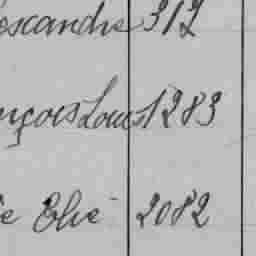 escandre 312
nçois Louis 1283
ie Elie 2082